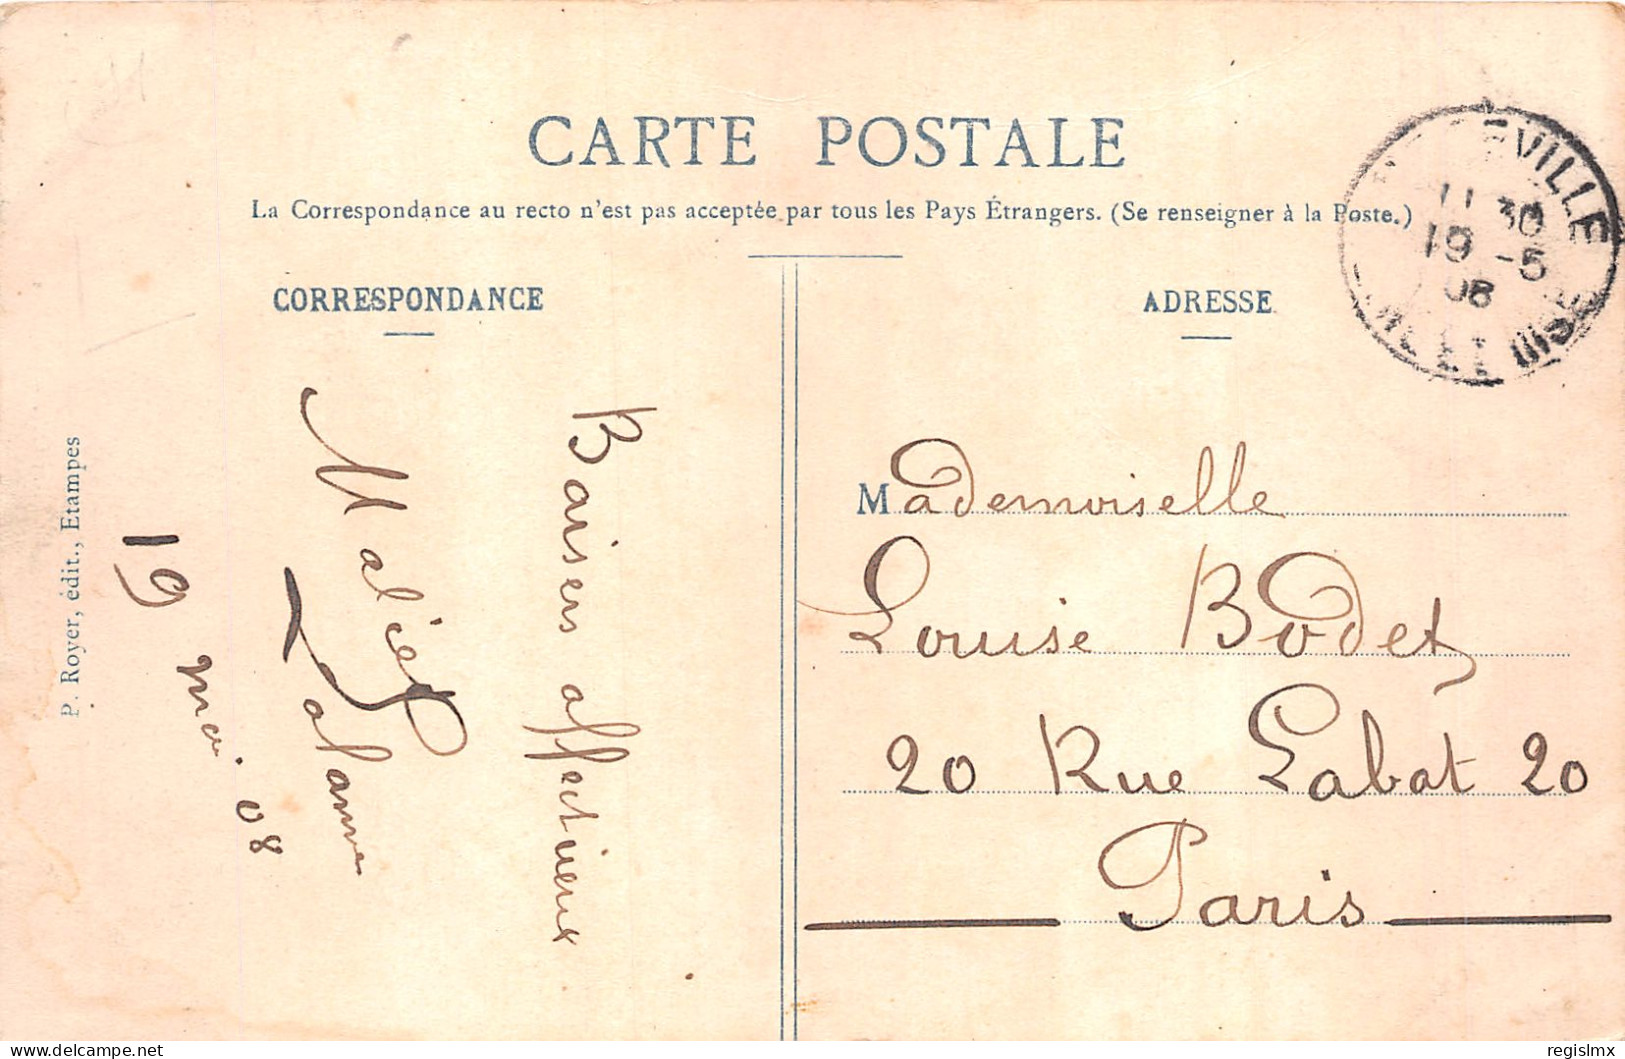 CARTE POSTALE
La Correspondance au recto n'est pas acceptée par tous les Pays Étrangers. (Se renseigner à la Poste.)
CORRESPONDANCE
ADRESSE
P. Royer, édit., Etampes
19 mai 08
Baisers affectueux
Mademoiselle
Louise Bodet
20 Rue Labat 20
Paris
EVILLE
11 30
19 -5
08
delcampe.net
regislmx